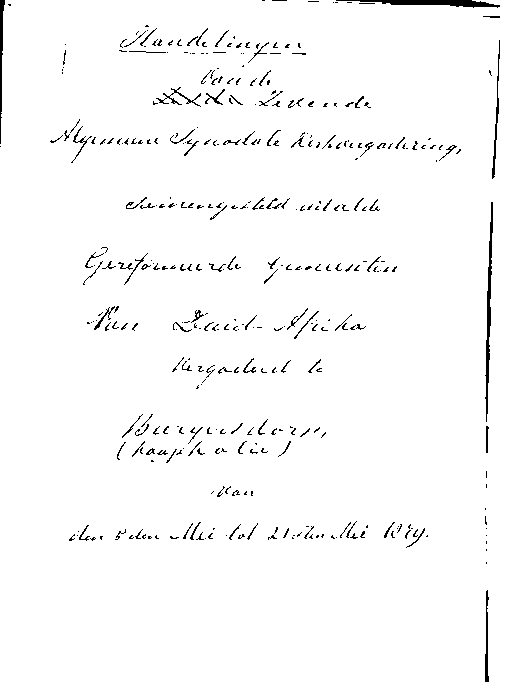 Handelingen
Van de
Zevende
Algemeene Synodale Kerkvergadering,
samengesteld uit alle
Gereformeerde Gemeenten
Van Zuid-Afrika
Vergaderd te
Burgersdorp,
(Kaapkolonie)
van
den 5 den Mei tot 21sten Mei 1879.